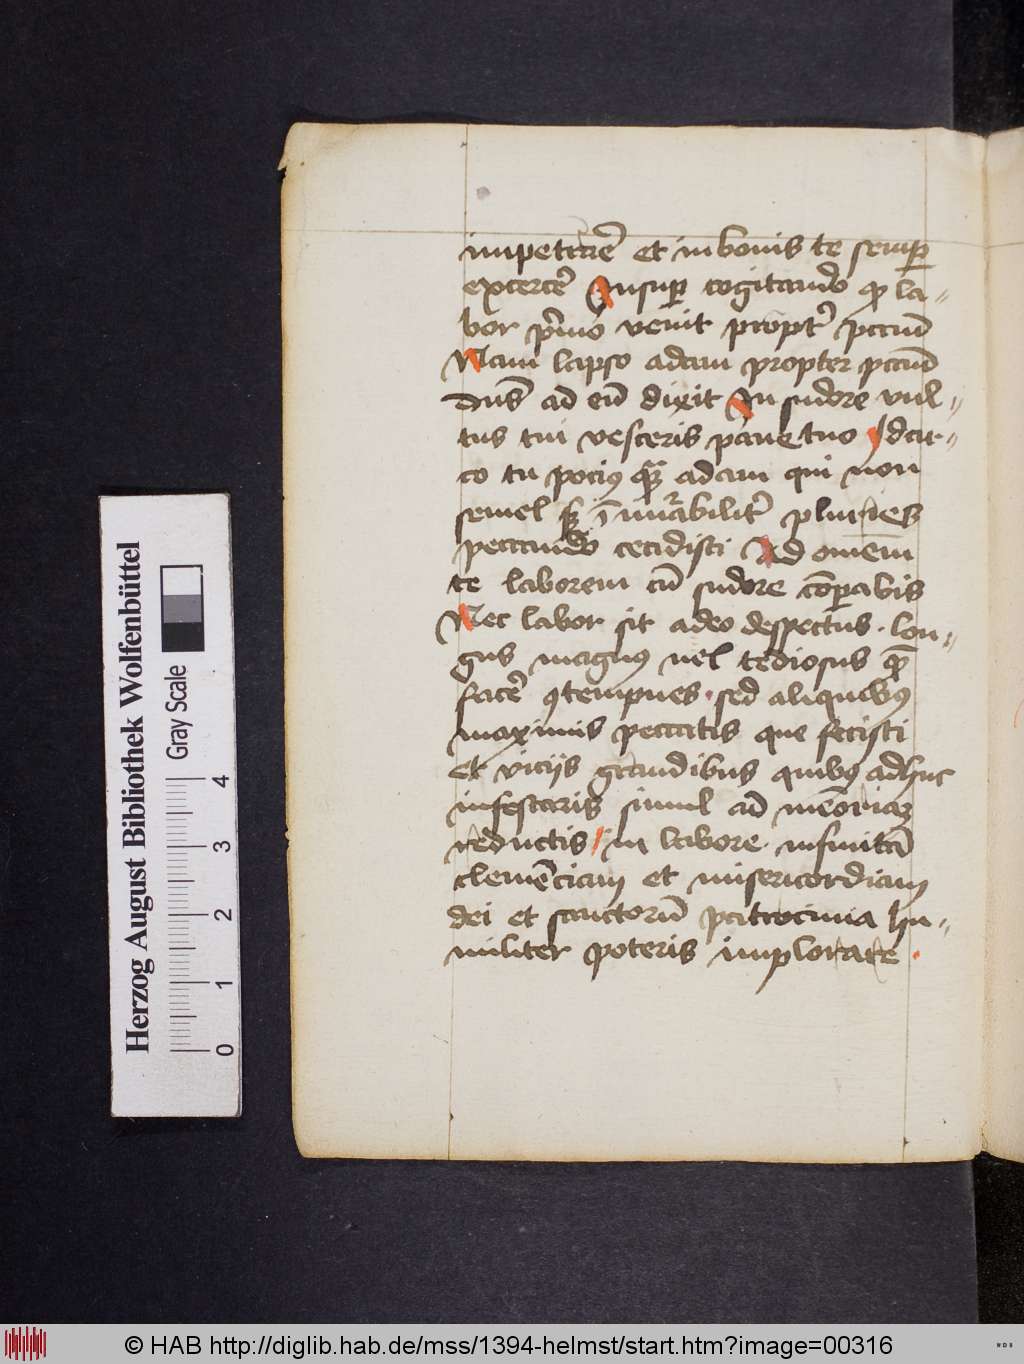 impetrare᷑ et in bonis te semꝑ
excerce᷑ Insuꝑ cogitando ꝙ la-
bor p͛mo venit propt᷑ pccm̄
Nam lapso adam propter pccm̄
dns̄ ad eū dixit In sudore vul-
tus tui vesceris pane tuo Idcir-
co tu pociꝰ qᷓ adam qui non
semel sꝫ īnu᷑abilit᷑ pluries
peccando cecidisti Ad omnem
te laborem cū sudore cōꝑabis
Nec labor sit adeo despectus . lon-
gus magnꝰ uel tediosus qᷓ
face᷑ ꝯtempnes . sed aliquibꝰ
maximis peccatis que fecisti
et viciis grandibus quibꝰ adhuc
infestaris simul ad memoriaꝫ
reductis / in labore . infinitā
clemēciam et misericordiam
dei et sanctorū patrocinia hu-
militer poteris implorare .
Herzog August Bibliothek Wolfenbüttel
Gray Scale
0 1 2 3 4
© HAB http://diglib.hab.de/mss/1394-helmst/start.htm?image=00316